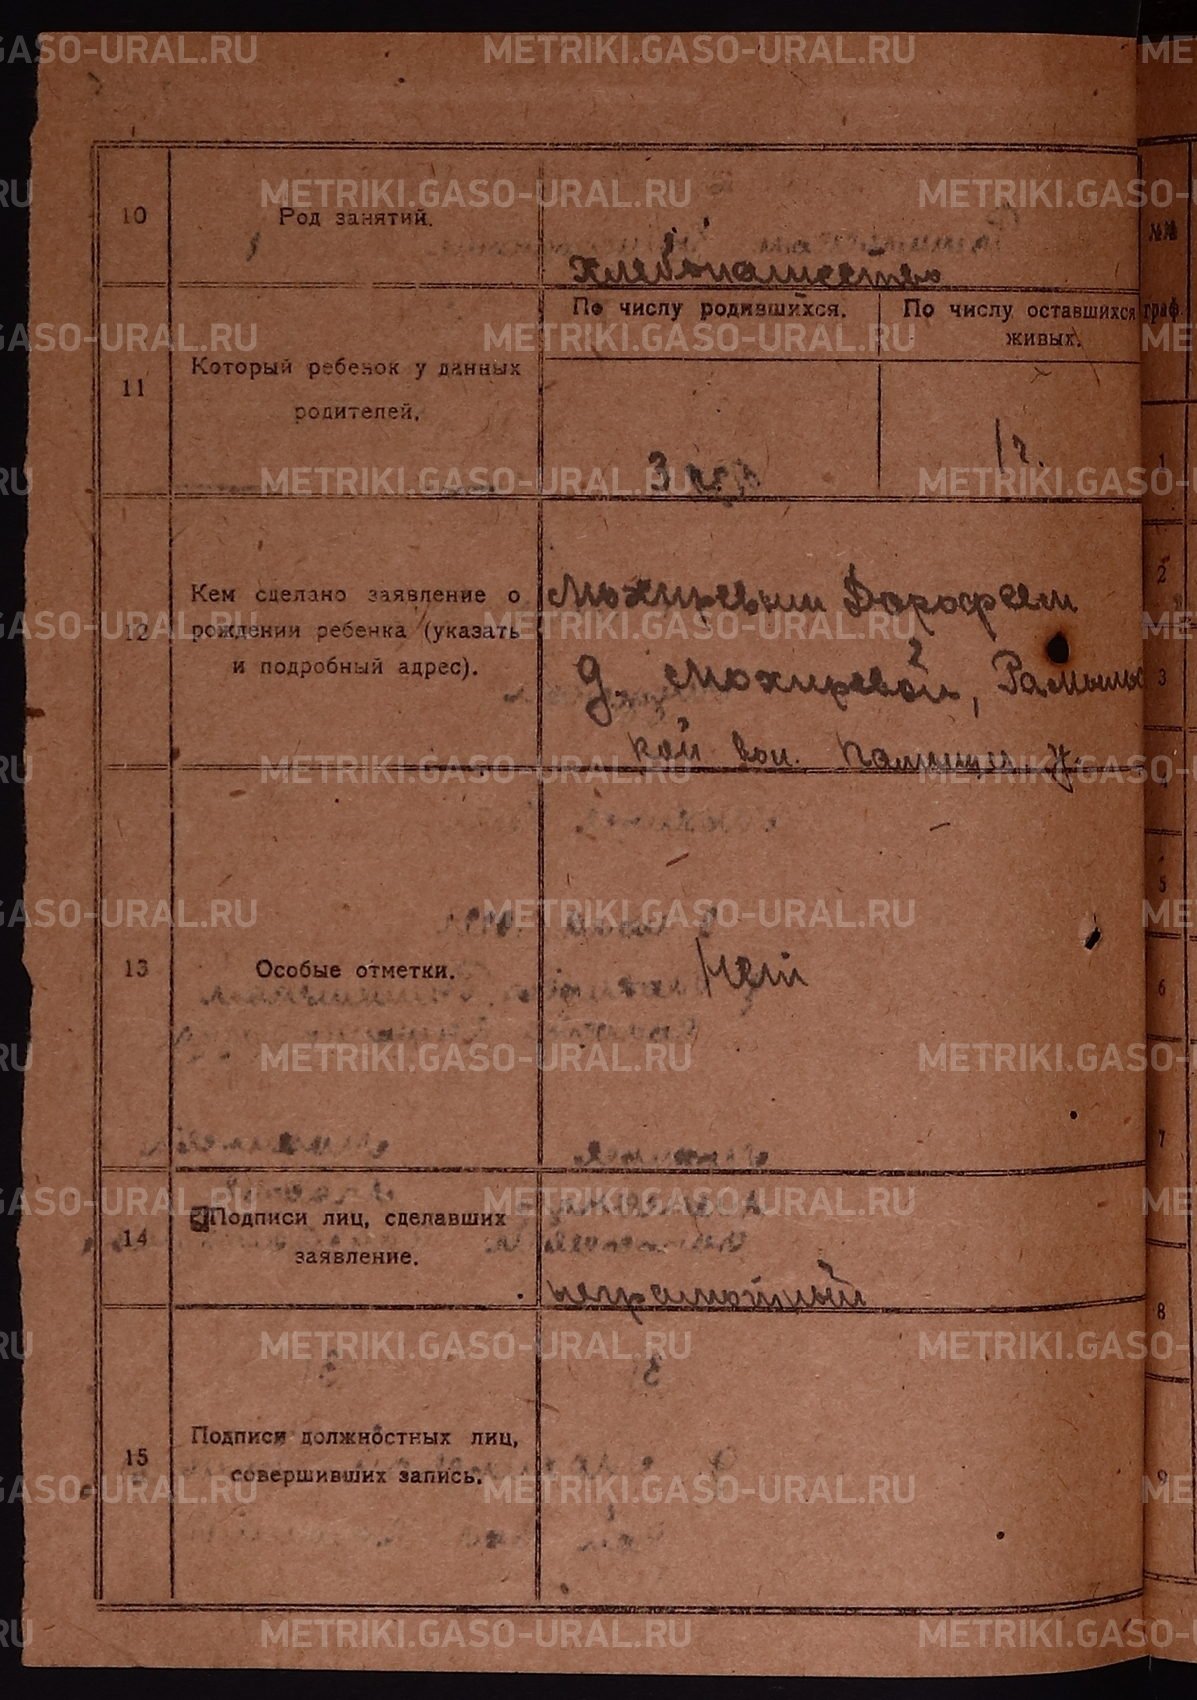 10
Род занятий.
Хлебопашество
11
Который ребенок у данных
родителей.
По числу родившихся.
По числу оставшихся
живых.
3
1
12
Кем сделано заявление о
рождении ребенка (указать
и подробный адрес).
Мохиревым Дорофеем
д. Мохиревой,
кой вол. у.
13
Особые отметки.
Нет
14
Подписи лиц, сделавших
заявление.
неграмотный
15
Подписи должностных лиц,
совершивших запись.
№№
граф.
1
2
3
4
5
6
7
8
9
METRIKI.GASO-URAL.RU